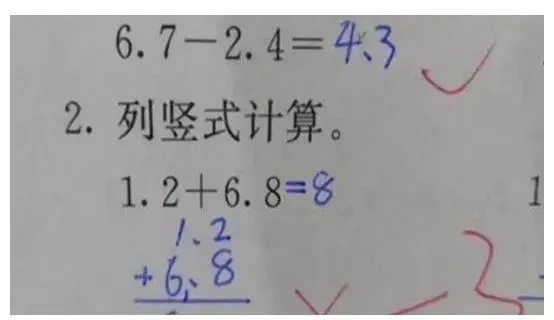 6.7－2.4＝4.3
2. 列竖式计算。
1.2＋6.8=8 1
1.2
+6.8